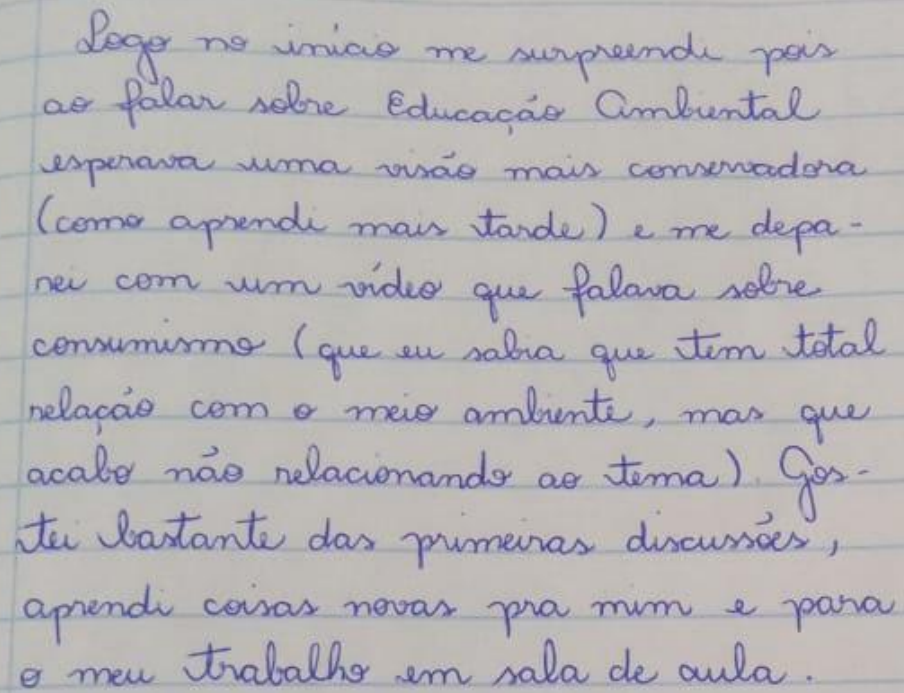 Logo no início me surpreendi pois
ao falar sobre Educação Ambiental
esperava uma visão mais conservadora
(como aprendi mais tarde) e me depa-
rei com um vídeo que falava sobre
consumismo (que eu sabia que tem total
relação com o meio ambiente, mas que
acabo não relacionando ao tema). Gos-
tei bastante das primeiras discussões,
aprendi coisas novas pra mim e para
o meu trabalho em sala de aula.